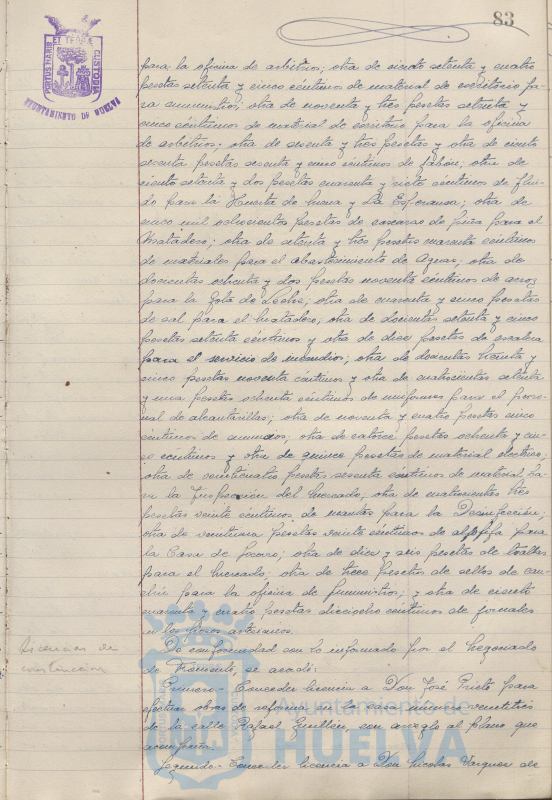 83
PORTUS MARIS ET TERRAE CUSTODIA
AYUNTAMIENTO DE HUELVA
para la oficina de arbitrios; otra de ciento setenta y cuatro
pesetas setenta y cinco céntimos de material de escritorio pa-
ra suministros; otra de noventa y tres pesetas setenta y
cinco céntimos de material de escritorio para la oficina
de arbitrios; otra de sesenta y tres pesetas y otra de ciento
sesenta pesetas sesenta y cinco céntimos de jabón; otra de
ciento setenta y dos pesetas cuarenta y siete céntimos de flui-
do para la Huerta de Mena y La Esperanza; otra de
cinco mil ochocientas pesetas de cascaras de piña para el
Matadero; otra de setenta y tres pesetas cuarenta céntimos
de materiales para el abastecimiento de Aguas; otra de
doscientas ochenta y dos pesetas noventa céntimos de arroz
para la Gota de Leche; otra de cuarenta y cinco pesetas
de sal para el Matadero; otra de doscientas setenta y cinco
pesetas setenta céntimos y otra de diez pesetas de escalera
para el servicio de incendios; otra de doscientas treinta y
cinco pesetas noventa céntimos y otra de cuatrocientas setenta
y una pesetas ochenta céntimos de uniformes para el perso-
nal de alcantarillas; otra de noventa y cuatro pesetas cinco
céntimos de anuncios; otra de catorce pesetas ochenta y cin-
co céntimos y otra de quince pesetas de material electrico;
otra de veinticuatro pesetas sesenta céntimos de material pa-
ra la Inspección del Mercado; otra de cuatrocientas tres
pesetas veinte céntimos de mantas para la Desinfección;
otra de veintiuna pesetas veinte céntimos de aljofifa para
la Casa de Socorro; otra de diez y seis pesetas de toallas
para el Mercado; otra de trece pesetas de sellos de cau-
chú para la oficina de suministros; y otra de ciento
cuarenta y cuatro pesetas dieciocho céntimos de jornales
en los pozos artesianos.
Licencias de
construccion
De conformidad con lo informado por el Negociado
de Fomento, se acordó:
Primero.- Conceder licencia a Don José Prieto para
efectuar obras de reforma en la casa número veintitrés
de la calle Rafael Guillén, con arreglo al plano que
acompaña.
Segundo.- Conceder licencia a Don Nicolas Vazquez de
Ayuntamiento de
HUELVA